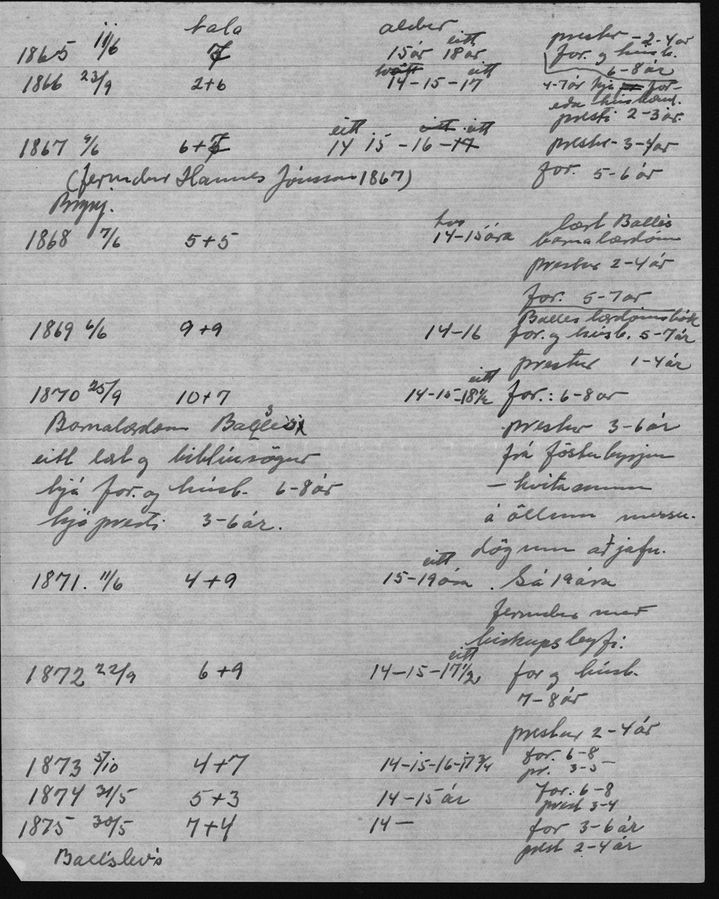 tala aldur
1865 11/6 7 15 ár 18 ár eitt prestur - 2-4 ár
for. og húsb. 6-8 ár
1866 23/9 2+6 14-15-17 eitt 4-7 ár hjá for-
eða húsbænd.
presti 2-3 ár.
1867 9/6 6+7 eitt 14 15 - 16 - 17 eitt prestur - 3-4 ár
(fermdur Hannes Jónsson 1867) for. 5-6 ár
1868 7/6 5+5 tvo 14-15 ára lært Balles
barnalærdóm
prestur 2-4 ár
for. 5-7 ár
Balles lærdómsbók
1869 6/6 9+9 14-16 for. og húsb. 5-7 ár
prestur 1-4 ár
1870 25/9 10+7 14-15-18 1/2 eitt for.: 6-8 ár
Barnalærdóm Balles prestur 3-6 ár
eitt lært og biblíusögur frá föstubyrjun
hjá for. og húsb. 6-8 ár - hvítasunnu
hjá presti 3-6 ár. á öllum messu-
dögum að jafn.
1871. 11/6 4+9 eitt 15-19 ára. Sá 19 ára
fermdur með
biskupsleyfi.
1872 22/9 6+9 14-15-17 1/2 eitt for og húsb.
7-8 ár
prestur 2-4 ár
1873 5/10 4+7 14-15-16-17 3/4 for. 6-8
pr. 3-5-
1874 31/5 5+3 14-15 ár for. 6-8
prest 3-4
1875 30/5 7+4 14- for 3-6 ár
Balslevs prest 2-4 ár